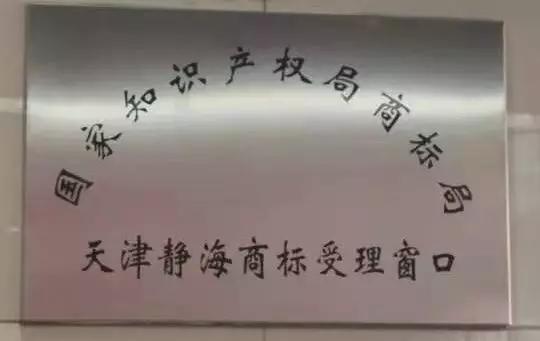 国家知识产权局商标局
天津静海商标受理窗口